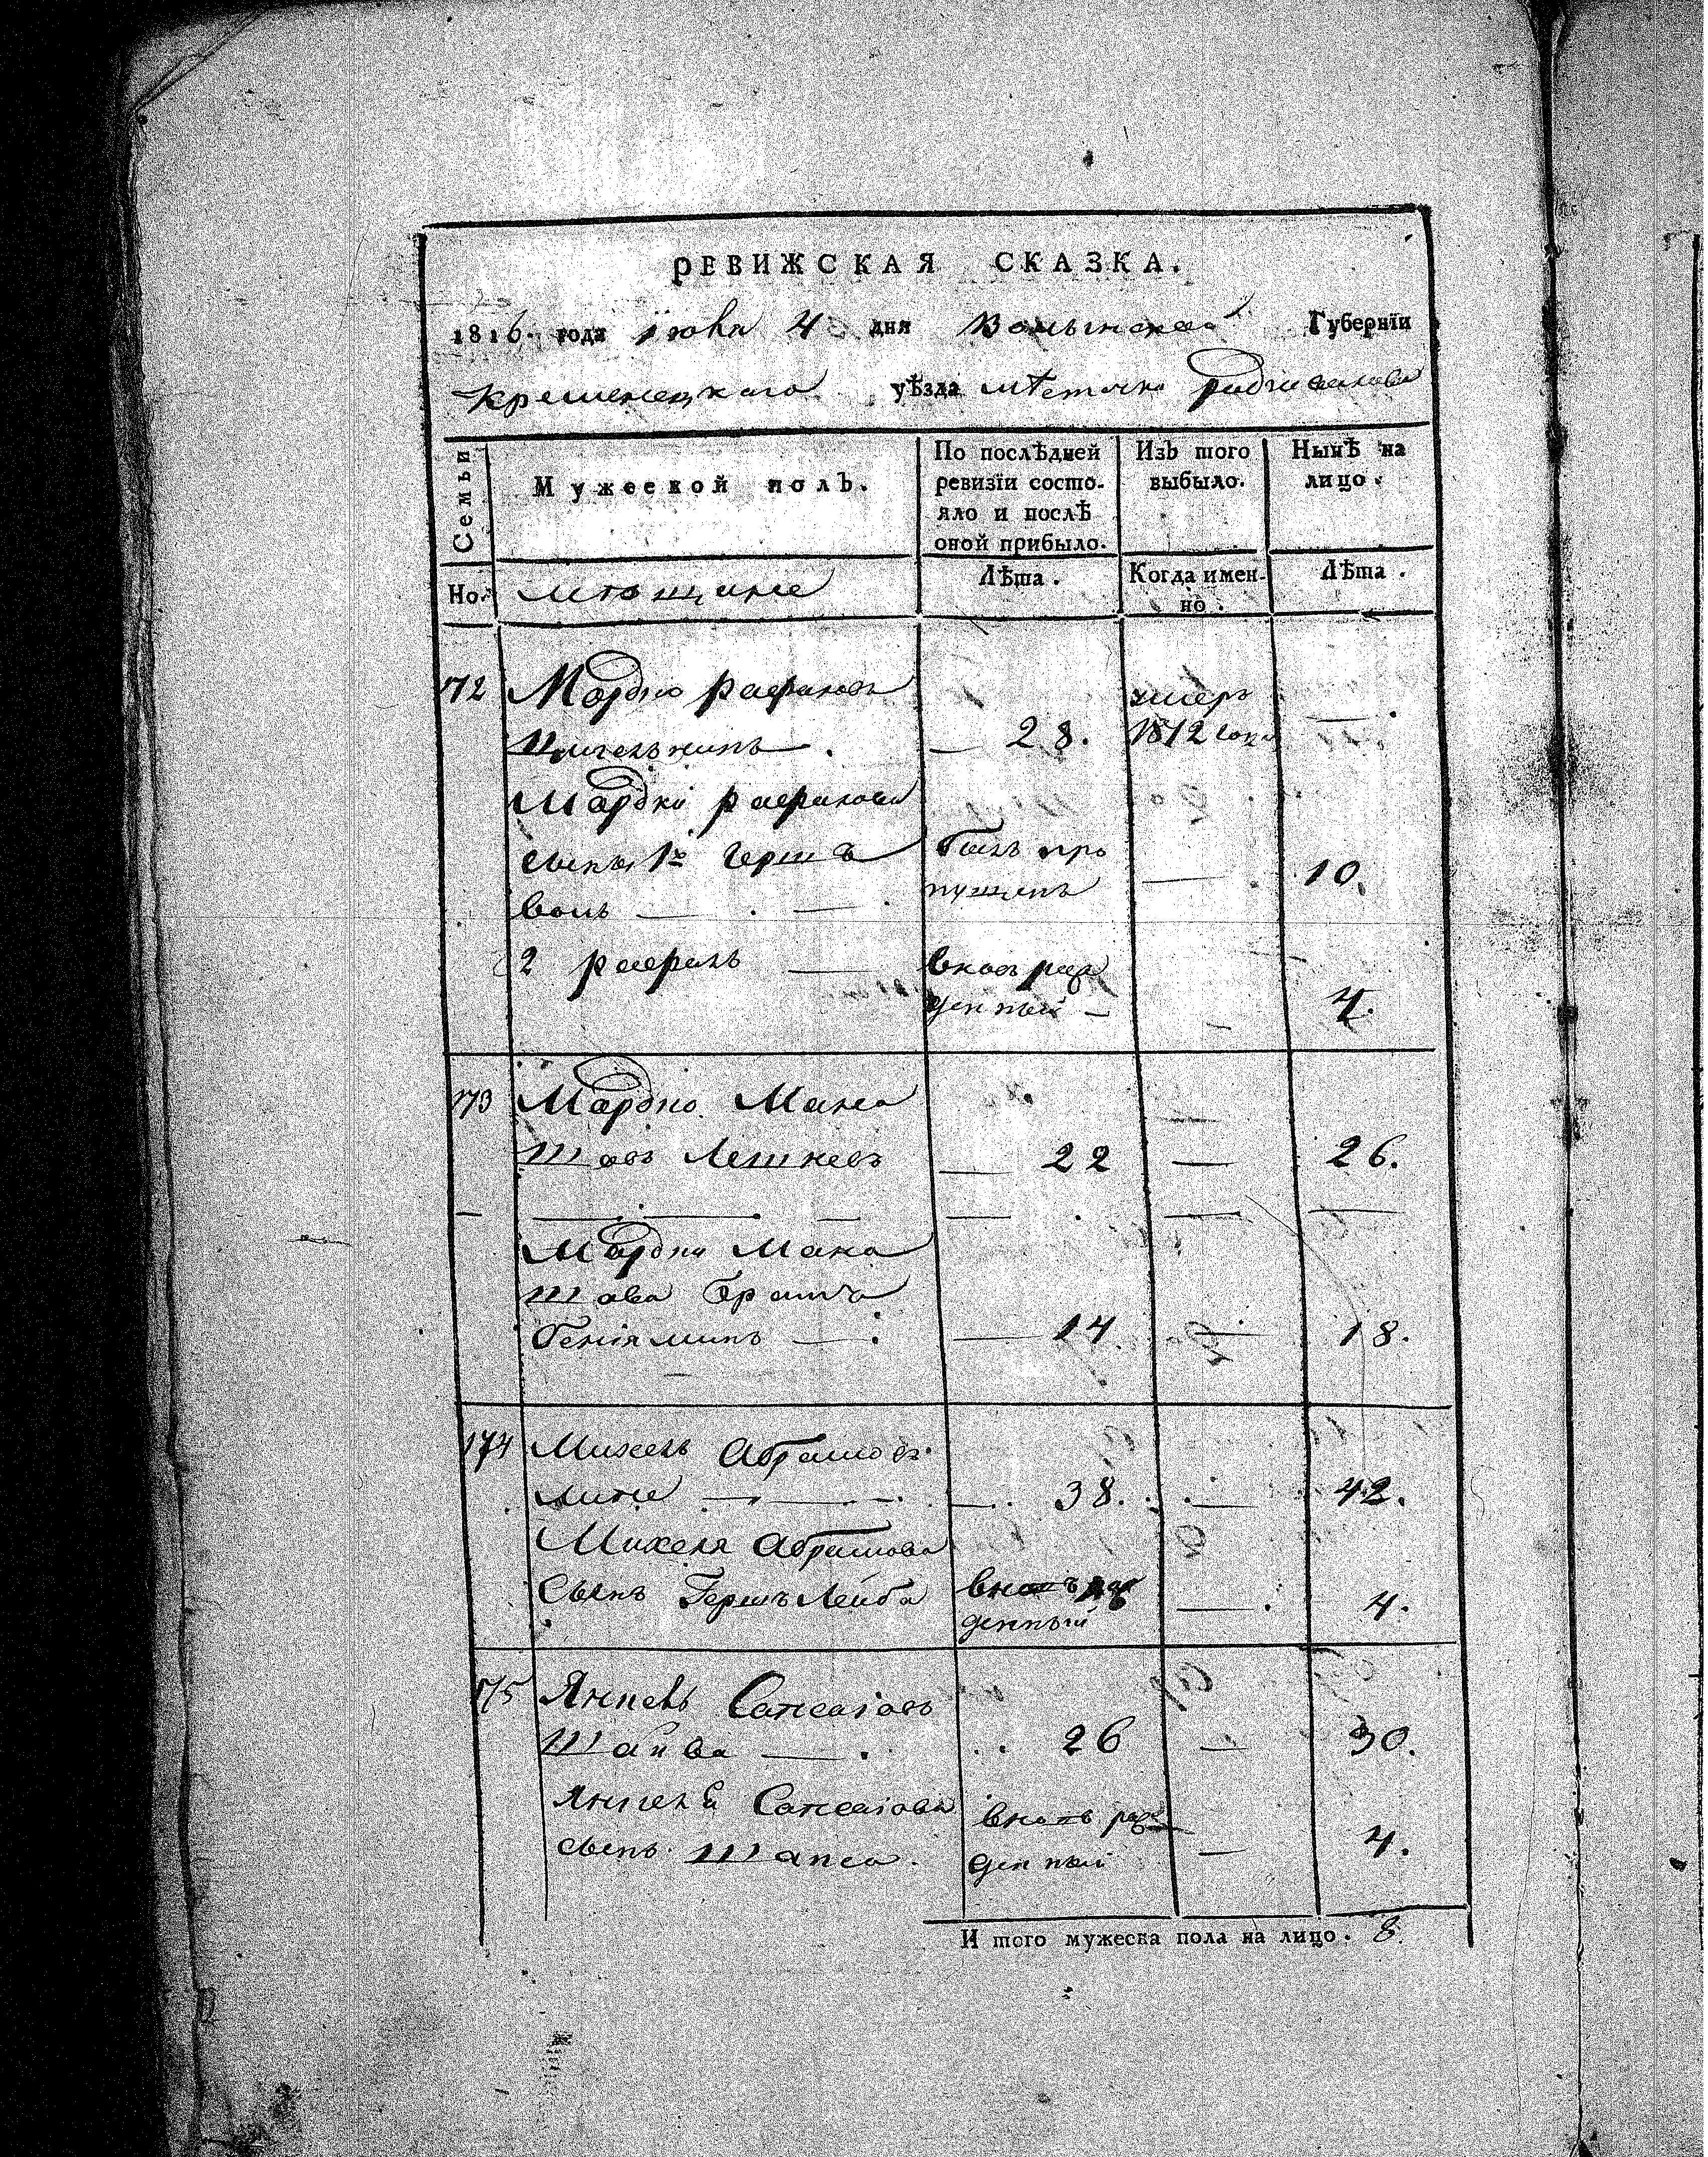 РЕВИЖСКАЯ СКАЗКА.
1816. года июня 4 дня Волынской Губернїи
Кременецкаго уѣзда мѣстечка Радзивилова
Семьи
Мужескои полъ.
По послѣдней
ревизїи состо-
яло и послѣ
оной прибыло.
Изъ того
выбыло.
Нынѣ на
лицо.
Но.
мѣщане
Лѣта.
Когда имен-
но.
Лѣта.
172 Мордко Рафаловъ умеръ
— 28. 1812 года —
Мордки Рафалова
сынъ 1й Герш былъ про
волъ пущенъ — 10.
2 Рафалъ — вновь рож
денный — 4.
173 Мордко Мана
шовъ Лешневъ — 22 — 26.
Мордки Мана
шова братъ
Бенїяминъ — — 14. — 18.
174 Михель Абрамовъ
— 38. — 42.
Михеля Абрамова
Сынъ Гершъ Лейба вновь рож — 4.
денный
175 Янкель
— 26 — 30.
Янкеля
сынъ Шапса вновь рож
денный — 4.
И того мужеска пола на лицо. 8.